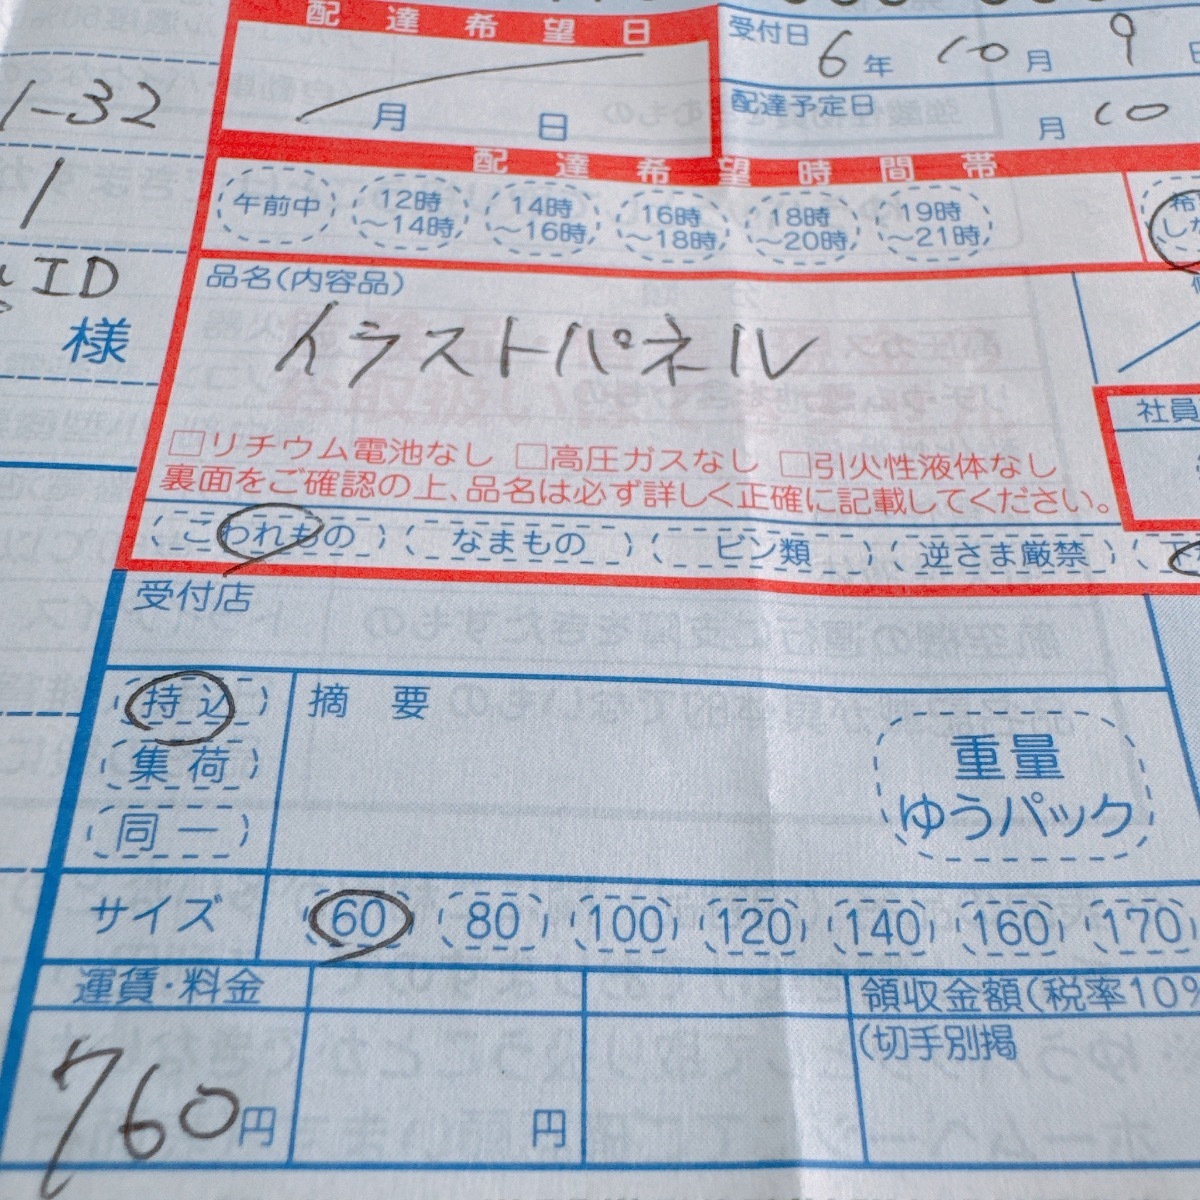 配達希望日
月 日
受付日 6年 10月 9日
配達予定日
月 10
1-32
1
ID
様
配達希望時間帯
午前中 12時～14時 14時～16時 16時～18時 18時～20時 19時～21時
品名(内容品)
イラストパネル
□リチウム電池なし □高圧ガスなし □引火性液体なし
裏面をご確認の上、品名は必ず詳しく正確に記載してください。
社員
こわれもの なまもの ビン類 逆さま厳禁
受付店
持込 摘要
集荷 重量
同一 ゆうパック
サイズ 60 80 100 120 140 160 170
運賃・料金 領収金額(税率10%
(切手別掲
760円 円